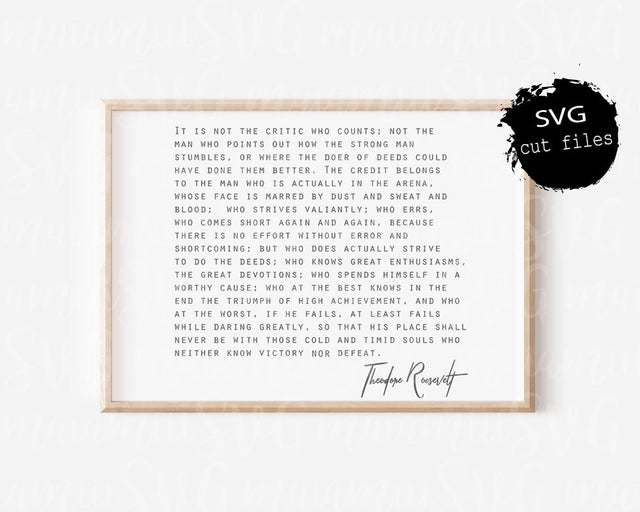 It is not the critic who counts; not the
man who points out how the strong man
stumbles, or where the doer of deeds could
have done them better. The credit belongs
to the man who is actually in the arena,
whose face is marred by dust and sweat and
blood;  who strives valiantly; who errs,
who comes short again and again, because
there is no effort without error and
shortcoming; but who does actually strive
to do the deeds; who knows great enthusiasms,
the great devotions; who spends himself in a
worthy cause; who at the best knows in the
end the triumph of high achievement, and who
at the worst, if he fails, at least fails
while daring greatly, so that his place shall
never be with those cold and timid souls who
neither know victory nor defeat.
Theodore Roosevelt
SVG
cut files